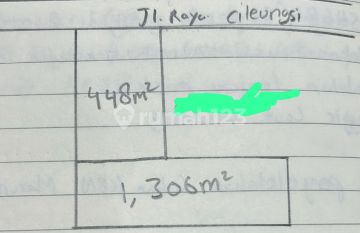 Jl. Raya Cileungsi
448m²
rumah123
1,306m²